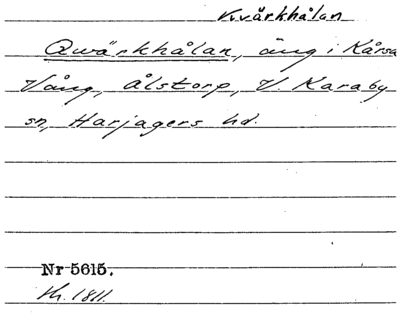 Kvärkhålan
Qwärkhålan, äng i Kårsa
Vång, Ålstorp, V. Karaby
sn, Harjagers hd.
Nr 5615.
1811.